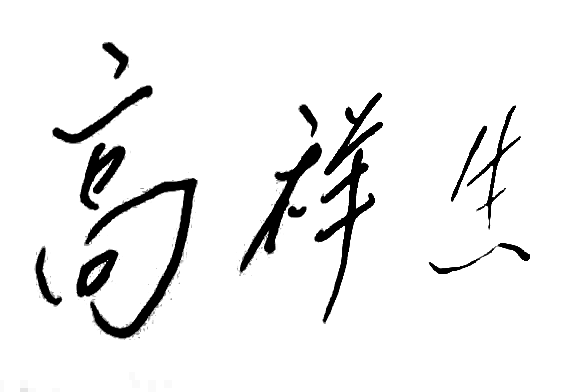 高祥生